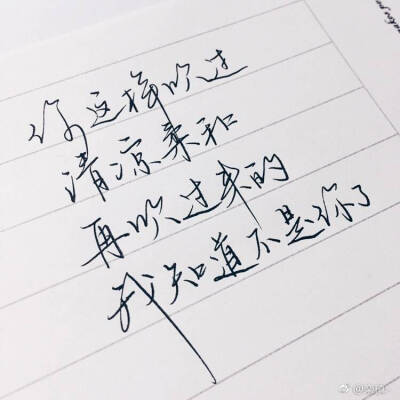 你这样吹过
清凉柔和
再吹过来的
我知道不是你了